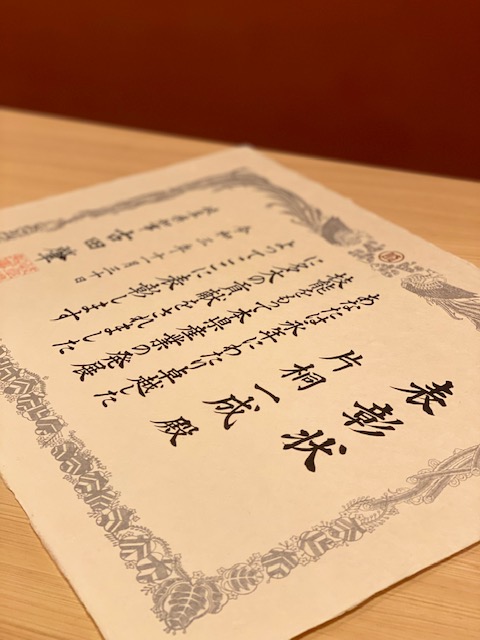 表彰状
片桐一成 殿
あなたは永年にわたり卓越した
技能をもって本県産業の発展
に多大の貢献をされました
よってここに表彰します
令和三年十一月二十日
吉田肇